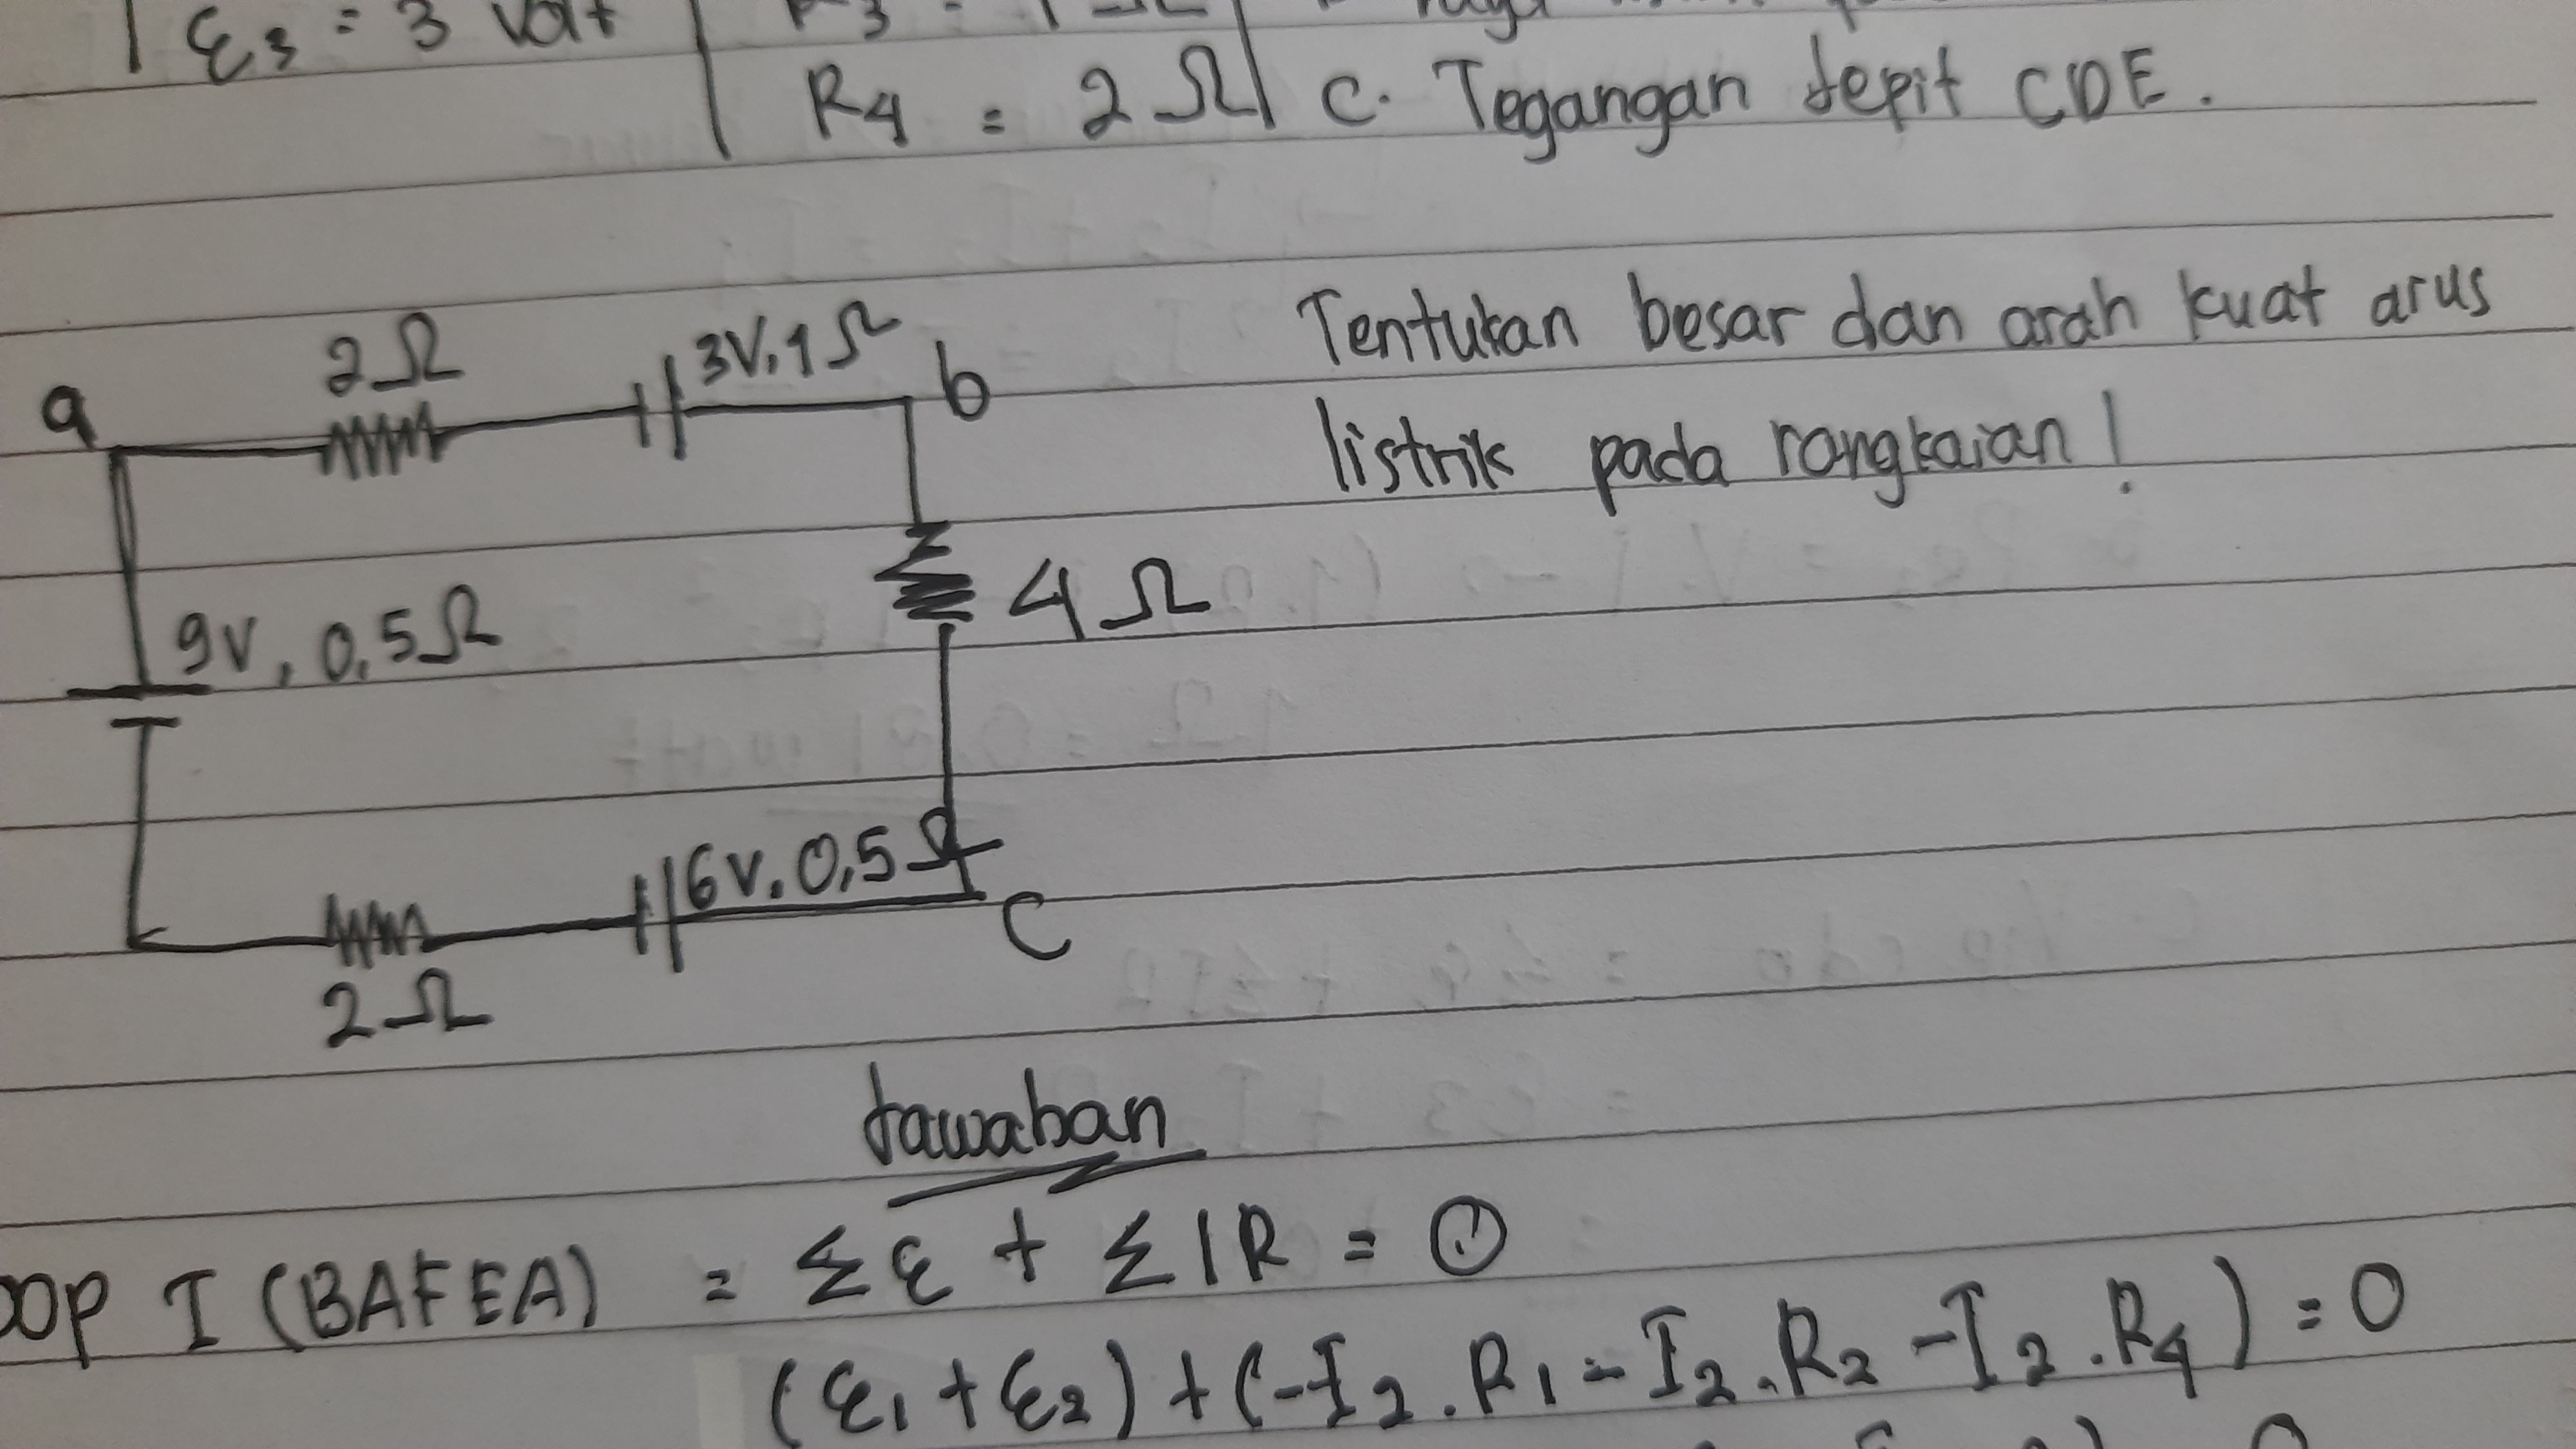 ε₃ = 3 Volt
R4 = 2 Ω c. Tegangan Jepit CDE.
2 Ω 3V, 1 Ω
a b
Tentukan besar dan arah kuat arus
listrik pada rangkaian !
9V, 0,5 Ω 4 Ω
6V, 0,5 Ω
2 Ω C
Jawaban
oop I (BAFEA) = Σε + ΣIR = 0
(ε₁ + ε₂) + (-I₂ . R₁ - I₂ . R₂ - I₂ . R₄) = 0